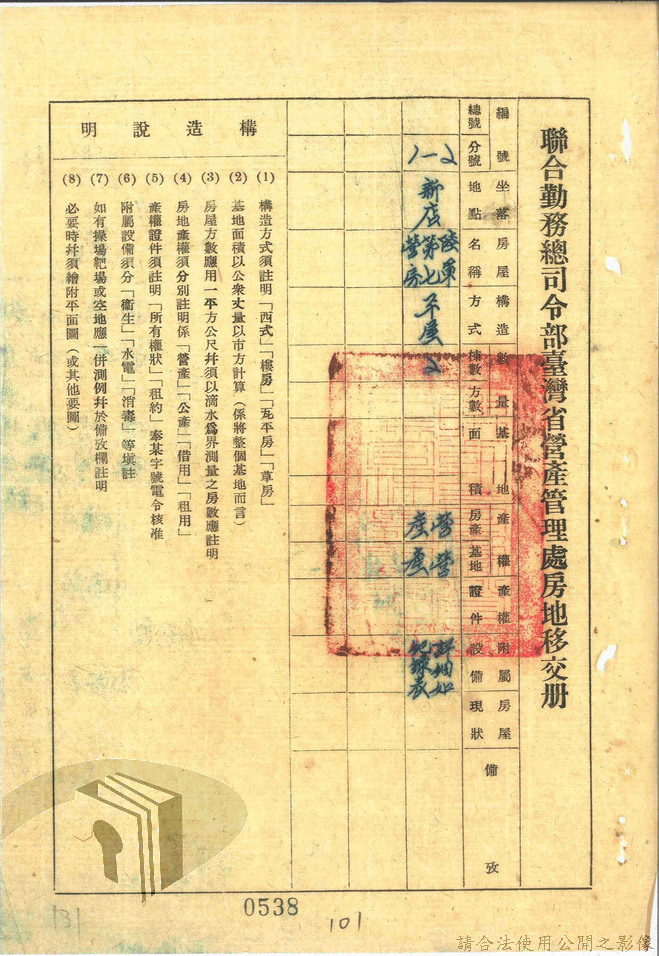 聯合勤務總司令部臺灣省營產管理處房地移交册
編號
總號
分號
坐落
地點
房屋
名稱
構造
方式
數量
棟數
方數
基地
面積
產權
房產
基地
產權
證件
附屬
設備
房屋
現狀
備攷
1-2
新店
陵軍
第七
營房
平屋
2
營產
營產
詳細如
紀錄表
構造說明
(1) 構造方式須註明「西式」「樓房」「瓦平房」「草房」
(2) 基地面積以公衆丈量以市方計算（係將整個基地而言）
(3) 房屋方數應用一平方公尺幷須以滴水爲界測量之房數應註明
(4) 房地產權須分別註明係「營產」「公產」「借用」「租用」
(5) 產權證件須註明「所有權狀」「租約」奉某字號電令核准
(6) 附屬設備須分「衞生」「水電」「消毒」等塡註
(7) 如有操塲靶場或空地應一併測例幷於備攷欄註明
(8) 必要時幷須繪附平面圖（或其他要圖）
0538
101
131
請合法使用公開之影像